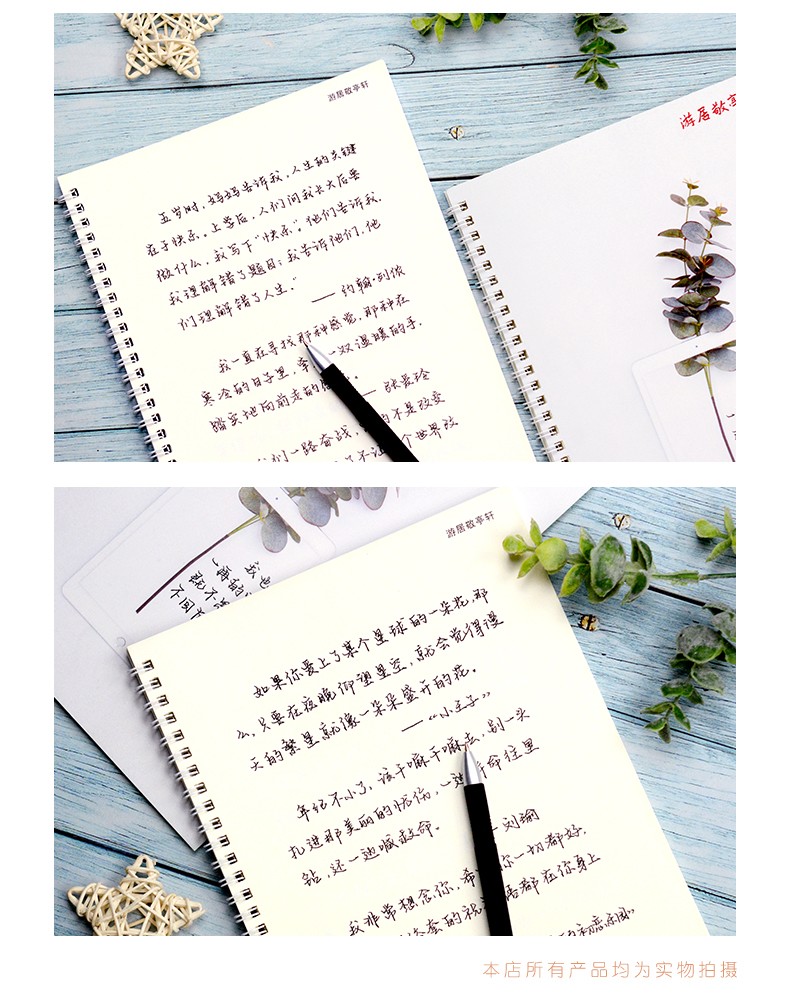 游居敬亭轩
五岁时,妈妈告诉我,人生的关键
在于快乐。上学后,人们问我长大后要
做什么,我写下“快乐”。他们告诉我,
我理解错了题目,我告诉他们,他
们理解错了人生。”
——约翰·列侬
我一直在寻找那种感觉,那种在
寒冷的日子里,牵 一双温暖的手,
踏实地向前走的感 。
——张爱玲
我们一路奋战, 不是改变
不让 个世界改
游居敬亭
游居敬亭轩
如果你爱上了某个星球的一朵花,那
么,只要在夜晚仰望星空,就会觉得漫
天的繁星就像一朵朵盛开的花。
——《小王子》
年纪不小了,该干嘛干嘛去,别一头
扎进那美丽的忧伤,一边 命往里
钻,还一边喊救命。
——刘瑜
我非常想念你,希 你一切都好,
套的祝 都在你身上
本店所有产品均为实物拍摄